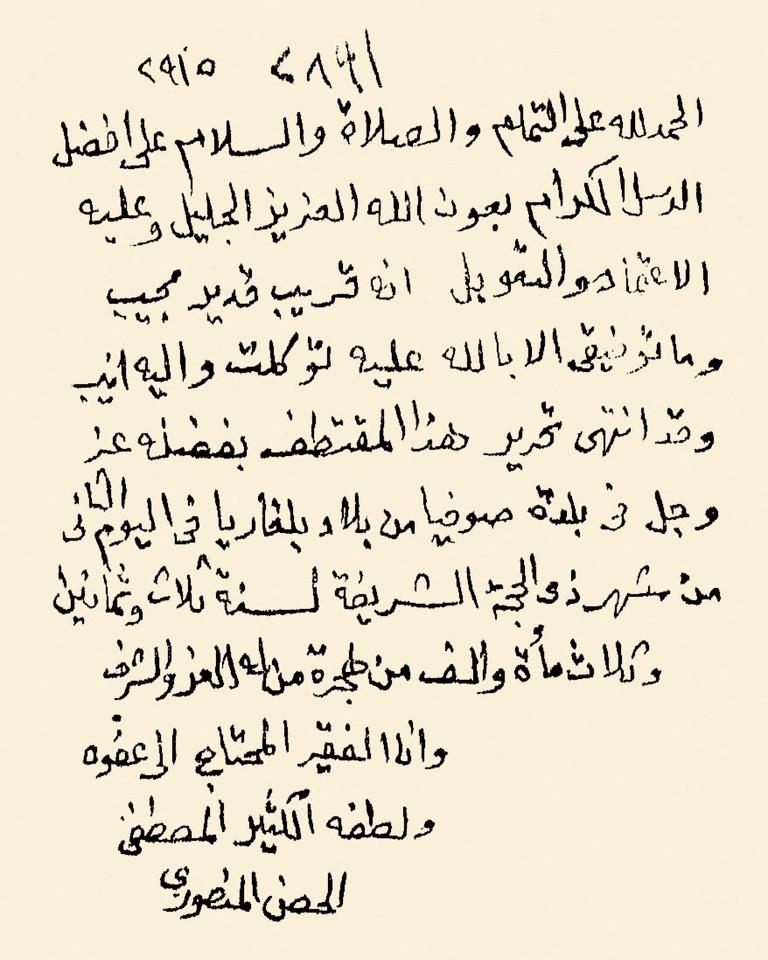 الحمدلله على التمام والصلاة والسلام على افضل
الرسل الكرام بعون الله العزيز الجليل وعليه
الاعتماد والتعويل انه قريب قدير مجيب
وما توفيقى الا بالله عليه توكلت واليه انيب
وقد انتهى تحرير هذا المقتطف بفضله عز
وجل فى بلدة صوفيا من بلاد بلغاريا فى اليوم الثانى
من شهر ذى الحجة الشريفة لسنة ثلاث وثمانين
وثلاث مأة والف من هجرة من له العز والشرف
وانا الفقير المحتاج الى عفوه
ولطفه الكثير المصطفى
الحصن المنصوري